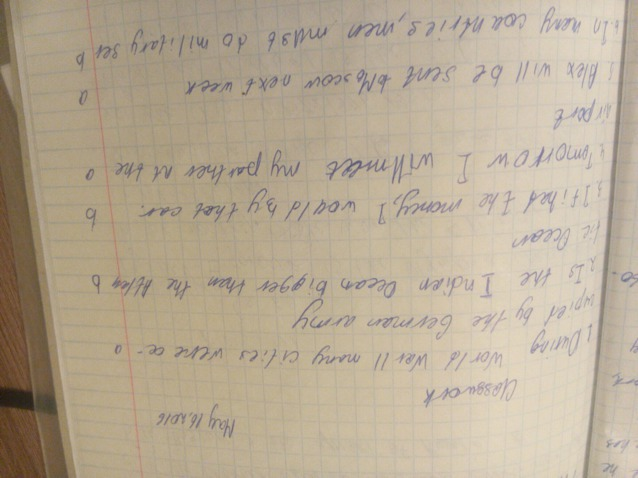 May 16, 2016
Classwork
1. During World War II many cities were oc- a
cupied by the German army
2. Is the Indian Ocean bigger than the Atlan b
tic Ocean
3. If i had the money, I would by that car. b
4. Tomorrow I will meet my partner at the a
airport
5. Alex will be sent to Moscow next week a
6. In many countries, men must do military ser b